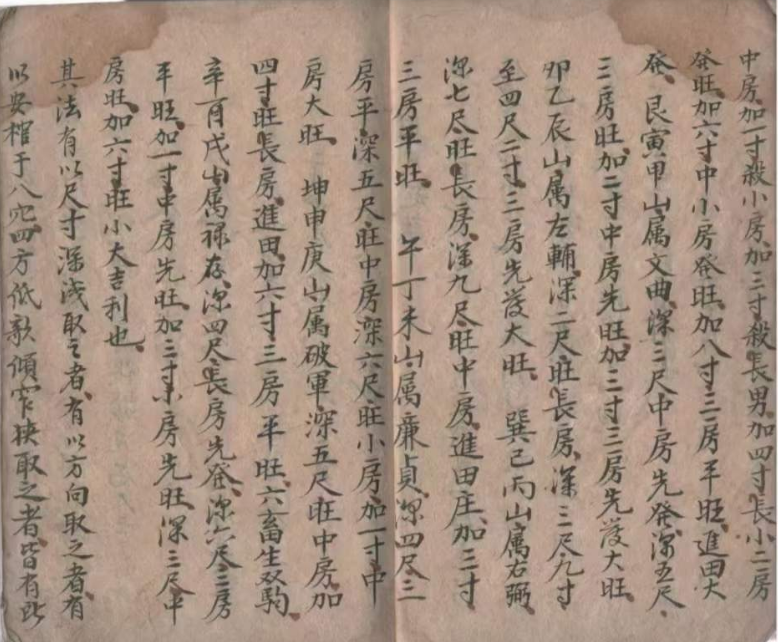 中房加一寸殺小房加三寸殺長男加四寸長小二房
發旺加六寸中小房發旺加八寸三房平旺進田大
發 艮寅甲山属文曲深三尺中房先發深五尺
三房旺加二寸中房先旺加三寸三房先發大旺
卯乙辰山属左輔深二尺旺長房深三尺九寸
至四尺二寸三房先發大旺 巽巳丙山属右弼
深七尺旺長房深九尺旺中房進田庄加二寸
三房平旺 午丁未山属廉貞深四尺三
房平深五尺旺中房深六尺旺小房加一寸中
房大旺 坤申庚山属破軍深五尺旺中房加
四寸旺長房進田加六寸三房平旺六畜生双駒
辛酉戌山属禄存深四尺長房先發深六尺三房
平旺加一寸中房先旺加三寸小房先旺深三尺中
房旺加六寸旺小大吉利也
其法有以尺寸深浅取之者有以方向取之者有
以安棺于八穴四方低欹傾窄狭取之者皆有此